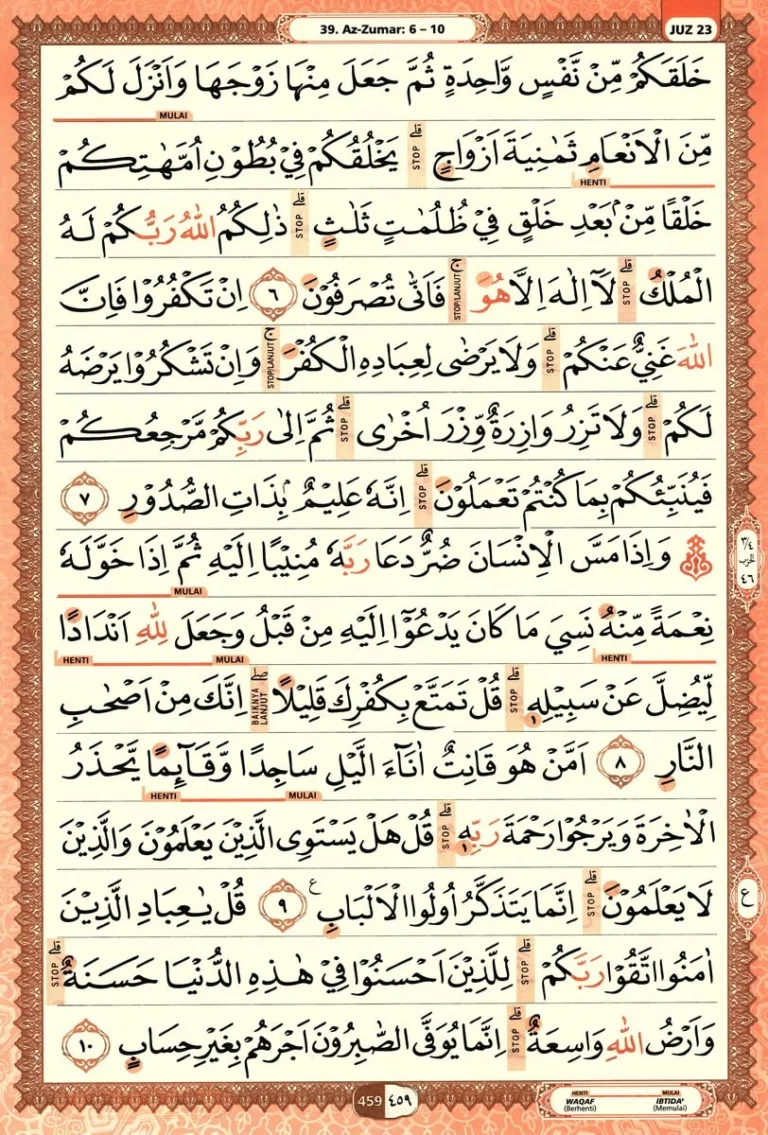 39. Az-Zumar: 6 – 10
JUZ 23
خَلَقَكُمْ مِّنْ نَّفْسٍ وَّاحِدَةٍ ثُمَّ جَعَلَ مِنْهَا زَوْجَهَا وَاَنْزَلَ لَكُمْ
MULAI
مِّنَ الْاَنْعَامِ ثَمٰنِيَةَ اَزْوَاجٍ ۗ STOP يَخْلُقُكُمْ فِيْ بُطُوْنِ اُمَّهٰتِكُمْ
HENTI
خَلْقًا مِّنْۢ بَعْدِ خَلْقٍ فِيْ ظُلُمٰتٍ ثَلٰثٍ ۗ STOP ذٰلِكُمُ اللّٰهُ رَبُّكُمْ لَهُ
الْمُلْكُ ۗ STOP لَآ اِلٰهَ اِلَّا هُوَ ۚ STOP/LANJUT فَاَنّٰى تُصْرَفُوْنَ ٦ اِنْ تَكْفُرُوْا فَاِنَّ
اللّٰهَ غَنِيٌّ عَنْكُمْ ۗ STOP وَلَا يَرْضٰى لِعِبَادِهِ الْكُفْرَ ۚ STOP/LANJUT وَاِنْ تَشْكُرُوْا يَرْضَهُ
لَكُمْ ۗ STOP وَلَا تَزِرُ وَازِرَةٌ وِّزْرَ اُخْرٰى ۗ STOP ثُمَّ اِلٰى رَبِّكُمْ مَّرْجِعُكُمْ
فَيُنَبِّئُكُمْ بِمَا كُنْتُمْ تَعْمَلُوْنَ ۗ STOP اِنَّهٗ عَلِيْمٌ ۢبِذَاتِ الصُّدُوْرِ ٧
۞ وَاِذَا مَسَّ الْاِنْسَانَ ضُرٌّ دَعَا رَبَّهٗ مُنِيْبًا اِلَيْهِ ثُمَّ اِذَا خَوَّلَهٗ
MULAI
نِعْمَةً مِّنْهُ نَسِيَ مَا كَانَ يَدْعُوْٓا اِلَيْهِ مِنْ قَبْلُ وَجَعَلَ لِلّٰهِ اَنْدَادًا
HENTI MULAI HENTI
لِّيُضِلَّ عَنْ سَبِيْلِهٖ ۗ STOP قُلْ تَمَتَّعْ بِكُفْرِكَ قَلِيْلًا ۖ BAIKNYA LANJUT اِنَّكَ مِنْ اَصْحٰبِ
النَّارِ ٨ اَمَّنْ هُوَ قَانِتٌ اٰنَاۤءَ الَّيْلِ سَاجِدًا وَّقَاۤىِٕمًا يَّحْذَرُ
MULAI HENTI
الْاٰخِرَةَ وَيَرْجُوْا رَحْمَةَ رَبِّهٖ ۗ STOP قُلْ هَلْ يَسْتَوِى الَّذِيْنَ يَعْلَمُوْنَ وَالَّذِيْنَ
لَا يَعْلَمُوْنَ ۗ STOP اِنَّمَا يَتَذَكَّرُ اُولُوا الْاَلْبَابِ ع ٩ قُلْ يٰعِبَادِ الَّذِيْنَ
اٰمَنُوا اتَّقُوْا رَبَّكُمْ ۗ STOP لِلَّذِيْنَ اَحْسَنُوْا فِيْ هٰذِهِ الدُّنْيَا حَسَنَةٌ ۗ STOP
وَاَرْضُ اللّٰهِ وَاسِعَةٌ ۗ STOP اِنَّمَا يُوَفَّى الصّٰبِرُوْنَ اَجْرَهُمْ بِغَيْرِ حِسَابٍ ١٠
٣/٤ الحزب ٤٦
ع
459 ٤٥٩
HENTI WAQAF (Berhenti)
MULAI IBTIDA' (Memulai)